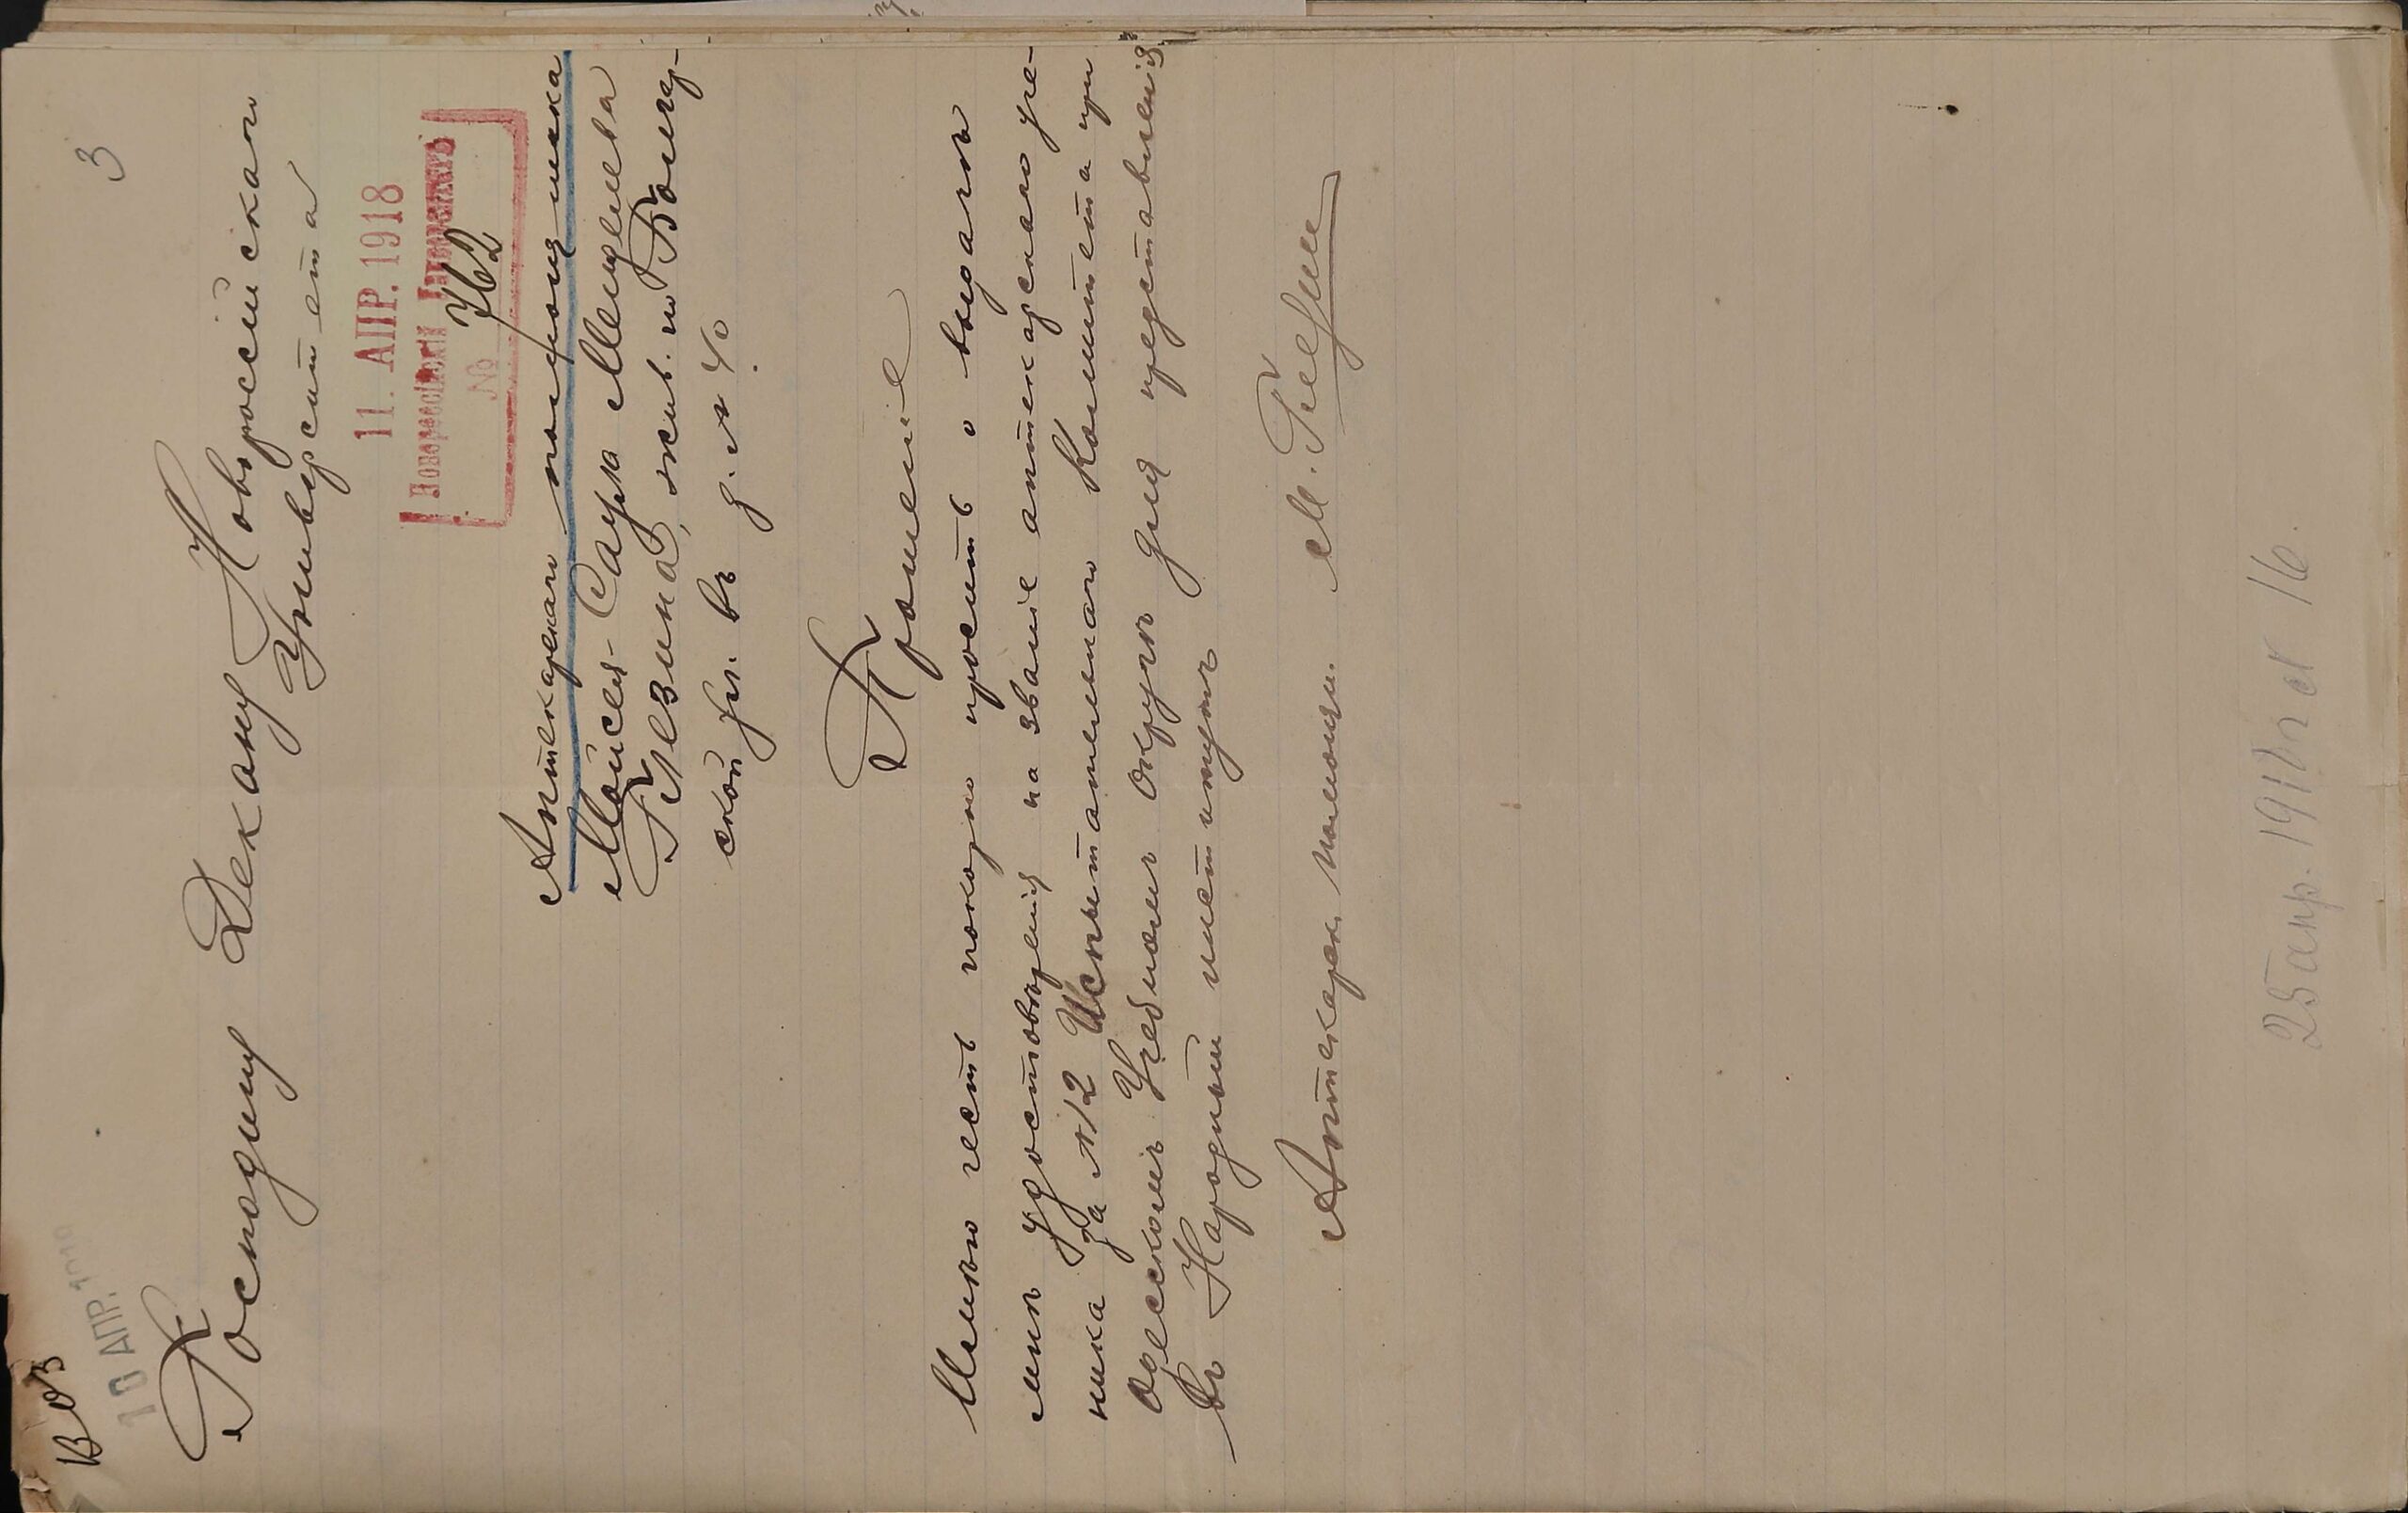 3
10 АПР. 1918
Господину Декану Новороссійскаго
Университета
11. АПР. 1918
Новороссійскій Университетъ
№ 762
Аптекарскаго помощника
Мойсея-Саула Менделева
Глезина, жив. по Болгар-
ской ул. въ д. № 40.
Прошеніе
Имѣю честь покорно просить о выдачѣ
мнѣ удостовѣренія на званіе аптекарскаго уче-
ника за №12 Испытательнаго Комитета при
Одесскомъ Учебномъ Округѣ для представленія
въ Народный институтъ
Аптекарск. помощн. М. Глезин
25 апр. 1918 г. № 16.